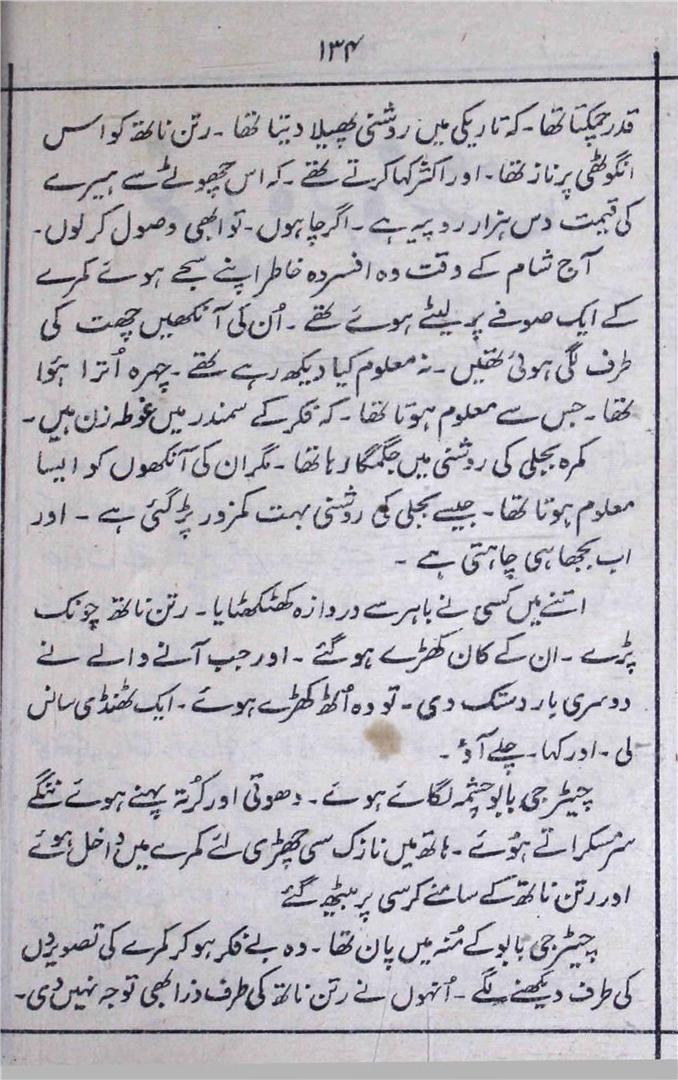 ۱۳۴
قدر چمکتا تھا۔ کہ تاریکی میں روشنی پھیلا دیتا تھا۔ رتن ناتھ کو اس
انگوٹھی پر ناز تھا۔ اور اکثر کہا کرتے تھے۔ کہ اس چھوٹے سے ہیرے
کی قیمت دس ہزار روپیہ ہے۔ اگر چاہوں۔ تو ابھی وصول کر لوں۔
آج شام کے وقت وہ افسردہ خاطر اپنے سجے ہوئے کمرے
کے ایک صوفے پر لیٹے ہوئے تھے۔ اُن کی آنکھیں چھت کی
طرف لگی ہوئی تھیں۔ نہ معلوم کیا دیکھ رہے تھے۔ چہرہ اُترا ہؤا
تھا۔ جس سے معلوم ہوتا تھا۔ کہ فکر کے سمندر میں غوطہ زن ہیں۔
کمرہ بجلی کی روشنی میں جگمگا رہا تھا۔ مگر ان کی آنکھوں کو ایسا
معلوم ہوتا تھا۔ جیسے بجلی کی روشنی بہت کمزور پڑ گئی ہے۔ اور
اب بجھا ہی چاہتی ہے۔
اتنے میں کسی نے باہر سے دروازہ کھٹکھٹایا۔ رتن ناتھ چونک
پڑے۔ ان کے کان کھڑے ہو گئے۔ اور جب آنے والے نے
دوسری بار دستک دی۔ تو وہ اُٹھ کھڑے ہوئے۔ ایک ٹھنڈی سانس
لی۔ اور کہا۔ چلے آؤ۔
چیٹرجی بابو چشمہ لگائے ہوئے۔ دھوتی اور کُرتہ پہنے ہوئے ننگے
سر مسکراتے ہوئے۔ ہاتھ میں نازک سی چھڑی لئے کمرے میں داخل ہوئے
اور رتن ناتھ کے سامنے کرسی پر بیٹھ گئے
چیٹرجی بابو کے مُنہ میں پان تھا۔ وہ بے فکر ہو کر کمرے کی تصویروں
کی طرف دیکھنے لگے۔ اُنہوں نے رتن ناتھ کی طرف ذرا بھی توجہ نہیں دی۔